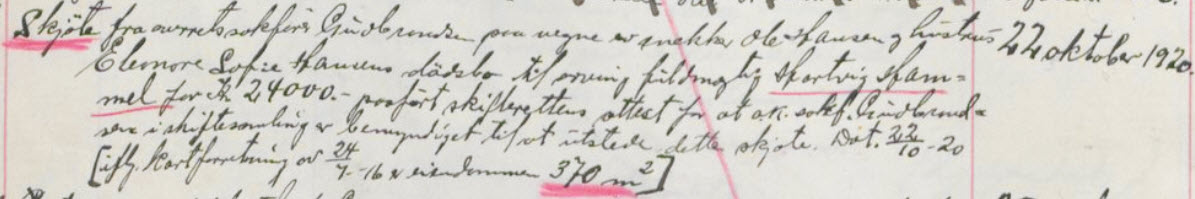 Skjöte fra overretssakförer Gudbrandsen paa vegne av snekker Ole Hansen og hustrus 22 oktober 1920.
Eleonore Sofie Hansens dödsbo til arving fuldmægtig Hartvig Ham=
mel for Kr 24000.- paafört skifterettens attest for at o.r.sakf. Gudbrand=
sen i skiftesamling er bemyndiget til at utstede dette skjöte. Dat. 22/10-20
[iflg. kartforretning av 24/7-16 er eiendommen 370 m²]